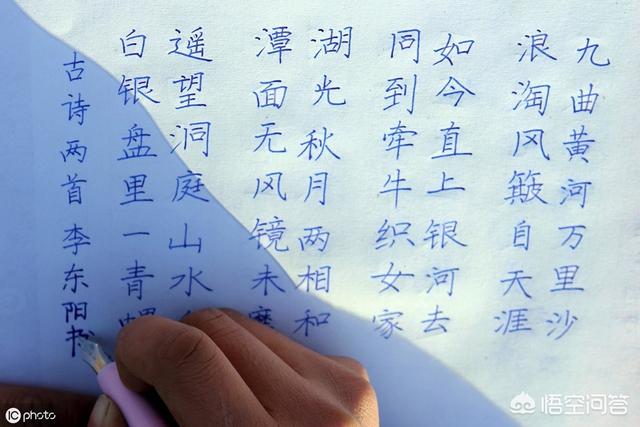 九曲黄河万里沙
浪淘风簸自天涯
如今直上银河去
同到牵牛织女家
湖光秋月两相和
潭面无风镜未磨
遥望洞庭山水
白银盘里一青螺
古诗两首李东阳书
iC photo
悟空问答